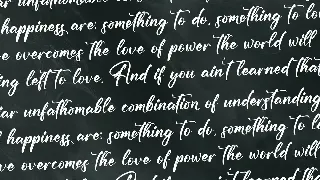 ar unfathomable combination of understanding
happiness are: something to do, something to lo
e overcomes the love of power the world will
ing left to love. And if you ain't learned that
ar unfathomable combination of understanding
happiness are: something to do, something to lo
ve overcomes the love of power the world will